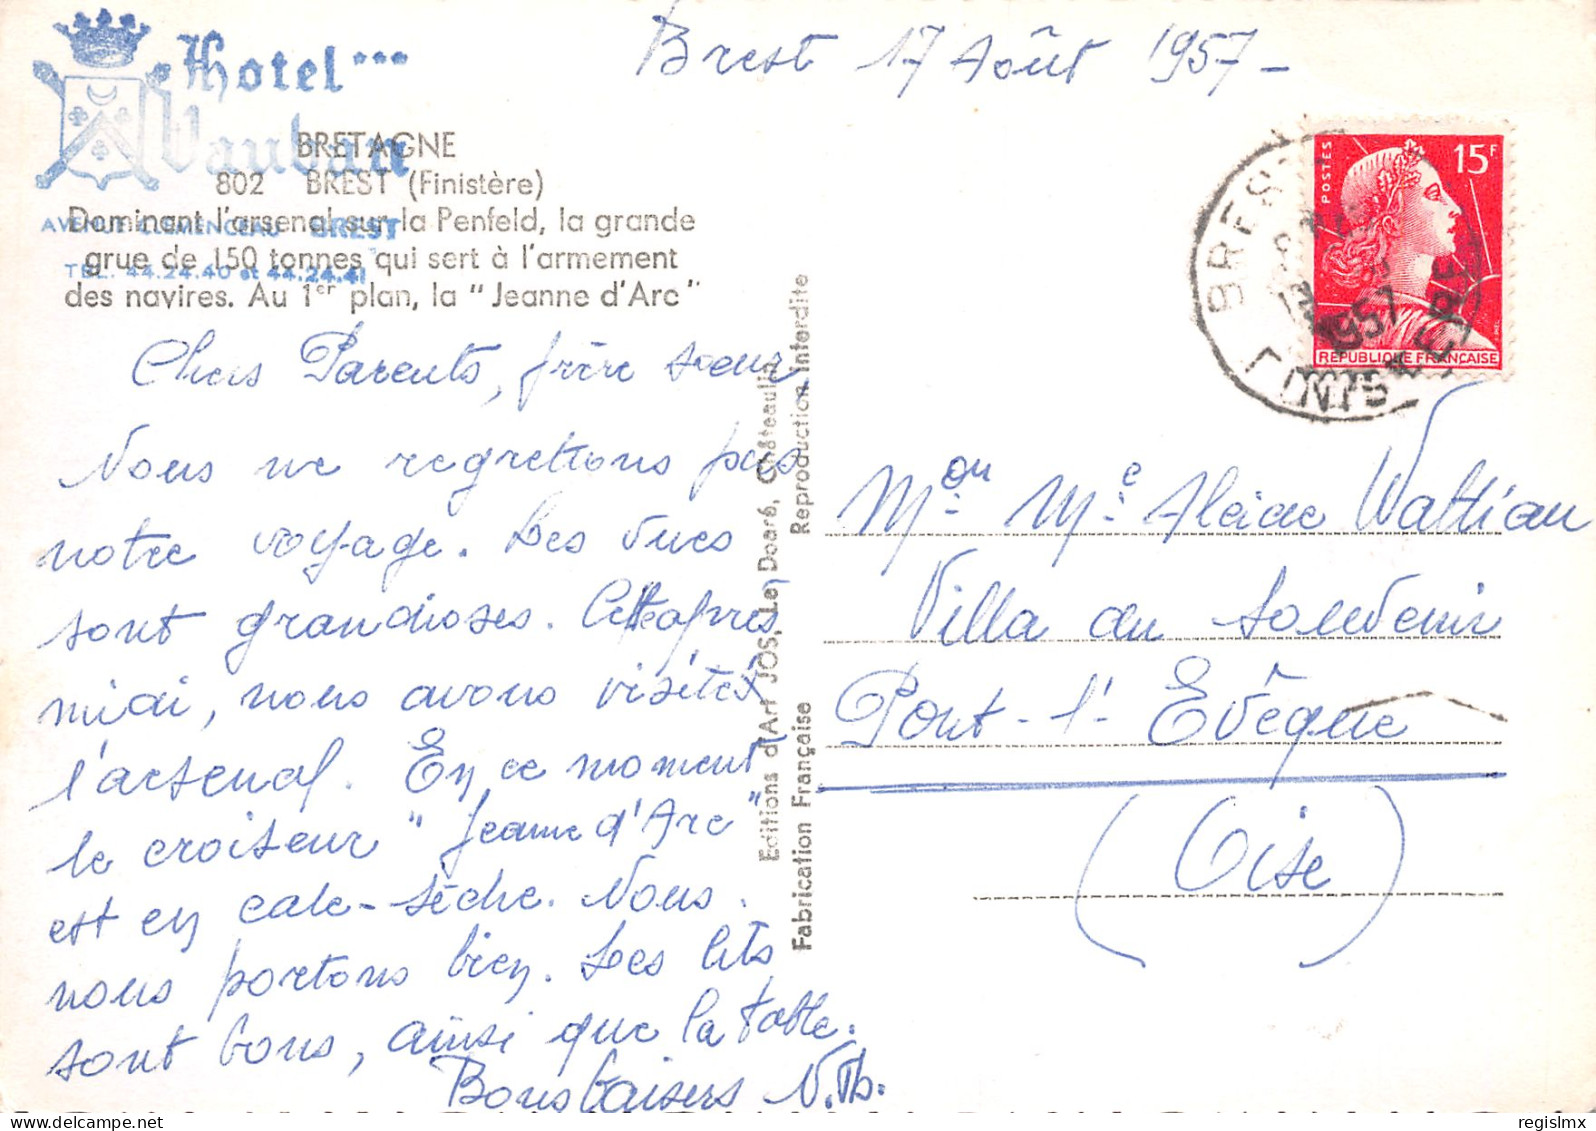 Hotel ***
Vauban
AVENUE CLEMENCEAU BREST
TEL. 44.24.40 et 44.24.41
BRETAGNE
802 BREST (Finistère)
Dominant l'arsenal sur la Penfeld, la grande
grue de 150 tonnes qui sert à l'armement
des navires. Au 1er plan, la "Jeanne d'Arc"
Brest 17 Août 1957 -
Chers Parents, frère soeur,
Nous ne regrettons pas
notre voyage. Les vues
sont grandioses. Cette après
midi, nous avons visités
l'arsenal. En ce moment
le croiseur "Jeanne d'Arc"
est en cale-sèche. Nous
nous portons bien. Les lits
sont bons, ainsi que la table.
Bons baisers N.Th.
Editions d'Art JOS, Le Doaré, Châteaulin
Fabrication Française
Reproduction Interdite
POSTES
15F
REPUBLIQUE FRANÇAISE
BREST
1957
FINISTERE
Mr ou Me Alcide Wattiau
Villa du Souvenir
Pont-l'-Evêque
(Oise)
regislmx